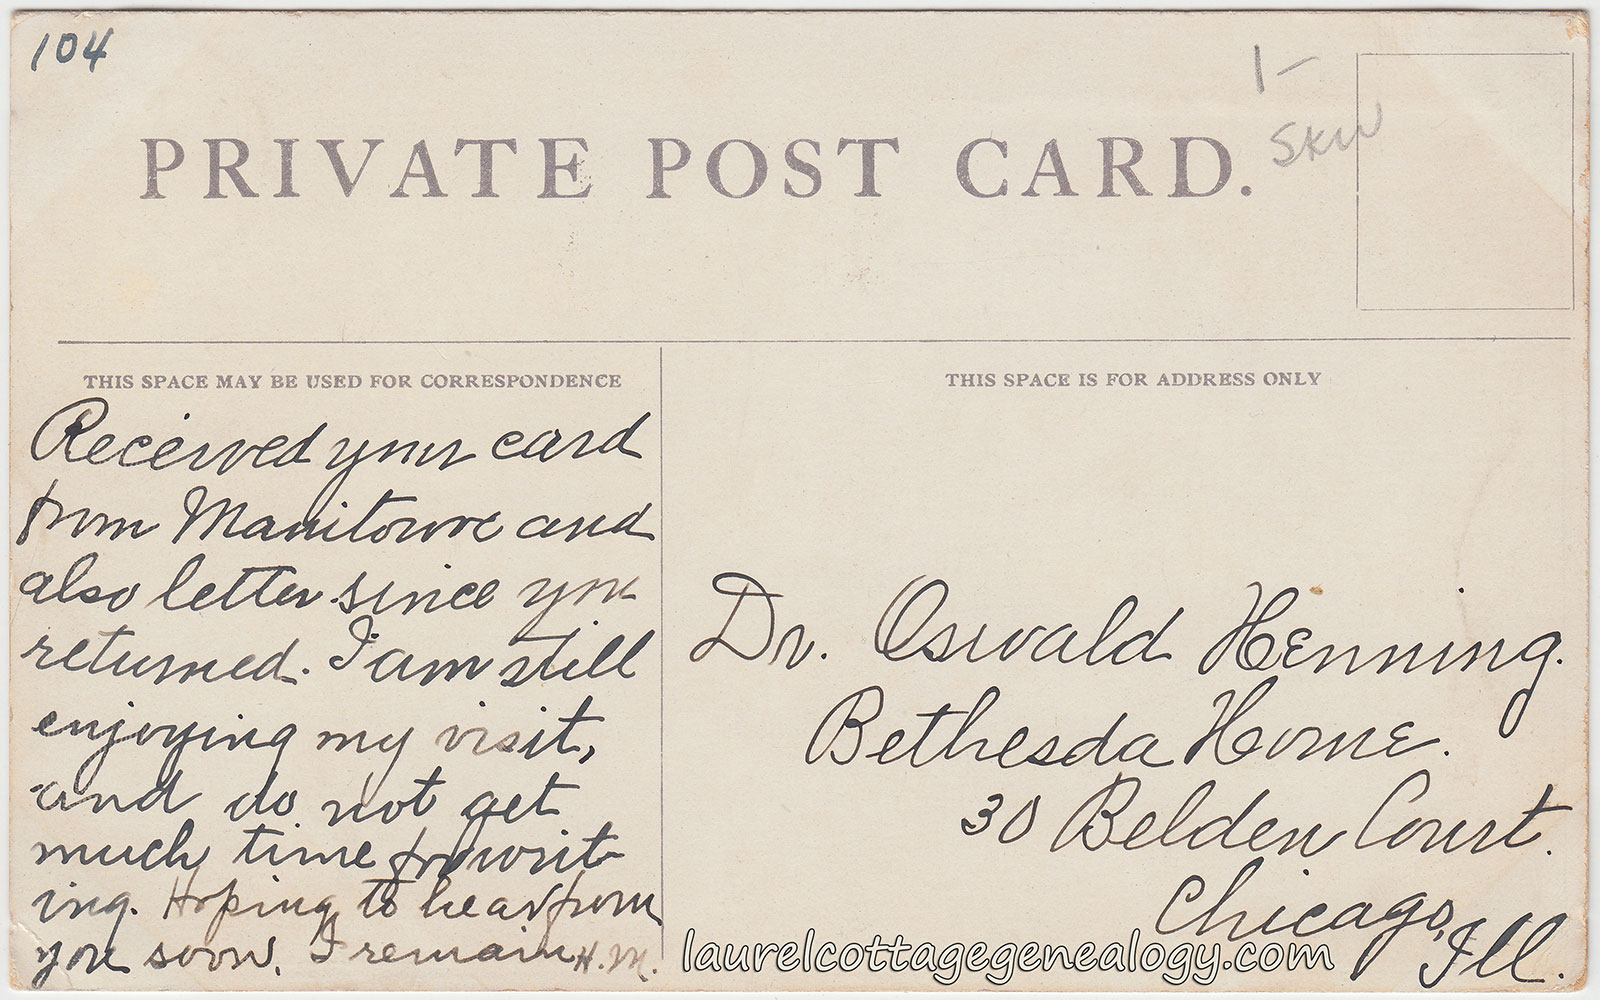 104
1-
SKW
PRIVATE POST CARD.
THIS SPACE MAY BE USED FOR CORRESPONDENCE
Received your card
from Manitowoc and
also letter since you
returned. I am still
enjoying my visit,
and do not get
much time for writ-
ing. Hoping to hear from
you soon. I remain H.M.
THIS SPACE IS FOR ADDRESS ONLY
Dr. Oswald Henning.
Bethesda Home.
30 Belden Court.
Chicago, Ill.
laurelcottagegenealogy.com